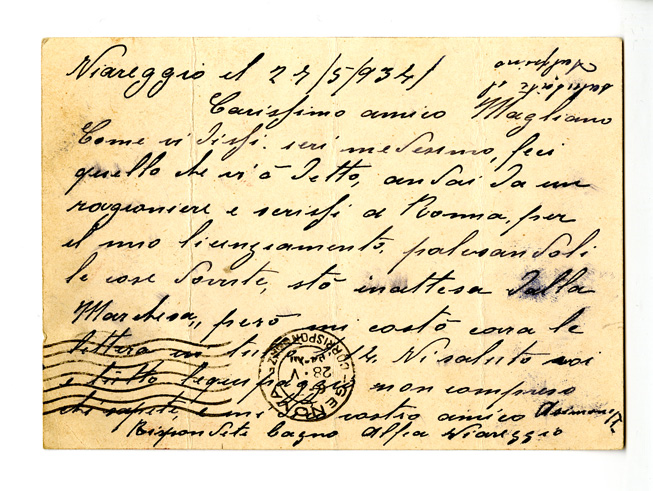 Viareggio il 27/5/934/
salutate il
Carissimo amico Magliano
Come vi dissi ieri medesimo, feci
quello che vi ò detto, andai da un
ragioniere e scrissi a Roma, per
il mio licenziamento, palesandoli
le cose dovute, stò inattesa dalla
Marchesa, però mi costò cara le
lettera in Vi saluto voi
e tutto lequipaggio, non compreso
chi sapete, e mi vostro amico
Rispondete Bagno Alfea Viareggio
GENOVA
CORRISPONDENZ
28.V